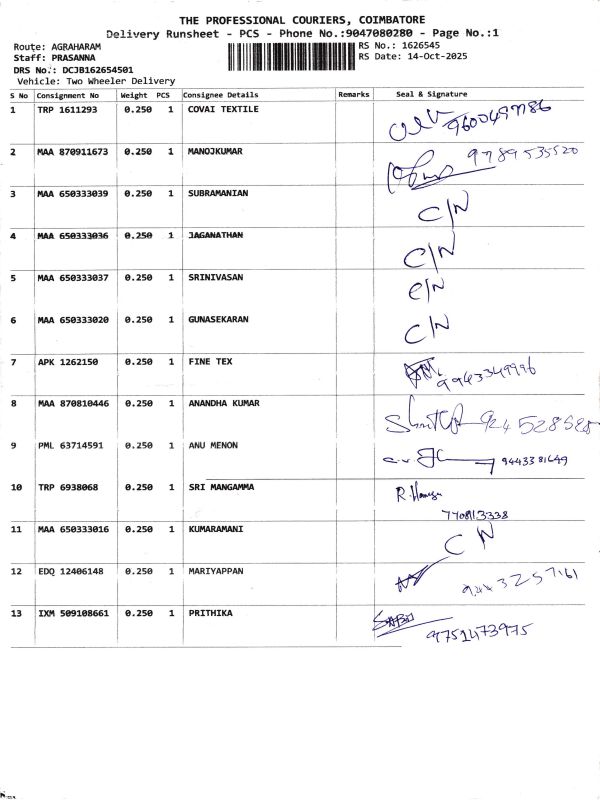 THE PROFESSIONAL COURIERS, COIMBATORE
Delivery Runsheet - PCS - Phone No.:9047080280 - Page No.:1
Route: AGRAHARAM
Staff: PRASANNA
DRS No.: DCJB162654501
Vehicle: Two Wheeler Delivery
RS No.: 1626545
RS Date: 14-Oct-2025
S No Consignment No Weight PCS Consignee Details Remarks Seal & Signature
1 TRP 1611293 0.250 1 COVAI TEXTILE
2 MAA 870911673 0.250 1 MANOJKUMAR 9789535520
3 MAA 650333039 0.250 1 SUBRAMANIAN C/N
4 MAA 650333036 0.250 1 JAGANATHAN C/N
5 MAA 650333037 0.250 1 SRINIVASAN C/N
6 MAA 650333020 0.250 1 GUNASEKARAN C/N
7 APK 1262150 0.250 1 FINE TEX 9943349996
8 MAA 870810446 0.250 1 ANANDHA KUMAR
9 PML 63714591 0.250 1 ANU MENON 9443381649
10 TRP 6938068 0.250 1 SRI MANGAMMA
11 MAA 650333016 0.250 1 KUMARAMANI C N
12 EDQ 12406148 0.250 1 MARIYAPPAN
13 IXM 509108661 0.250 1 PRITHIKA 9751473975